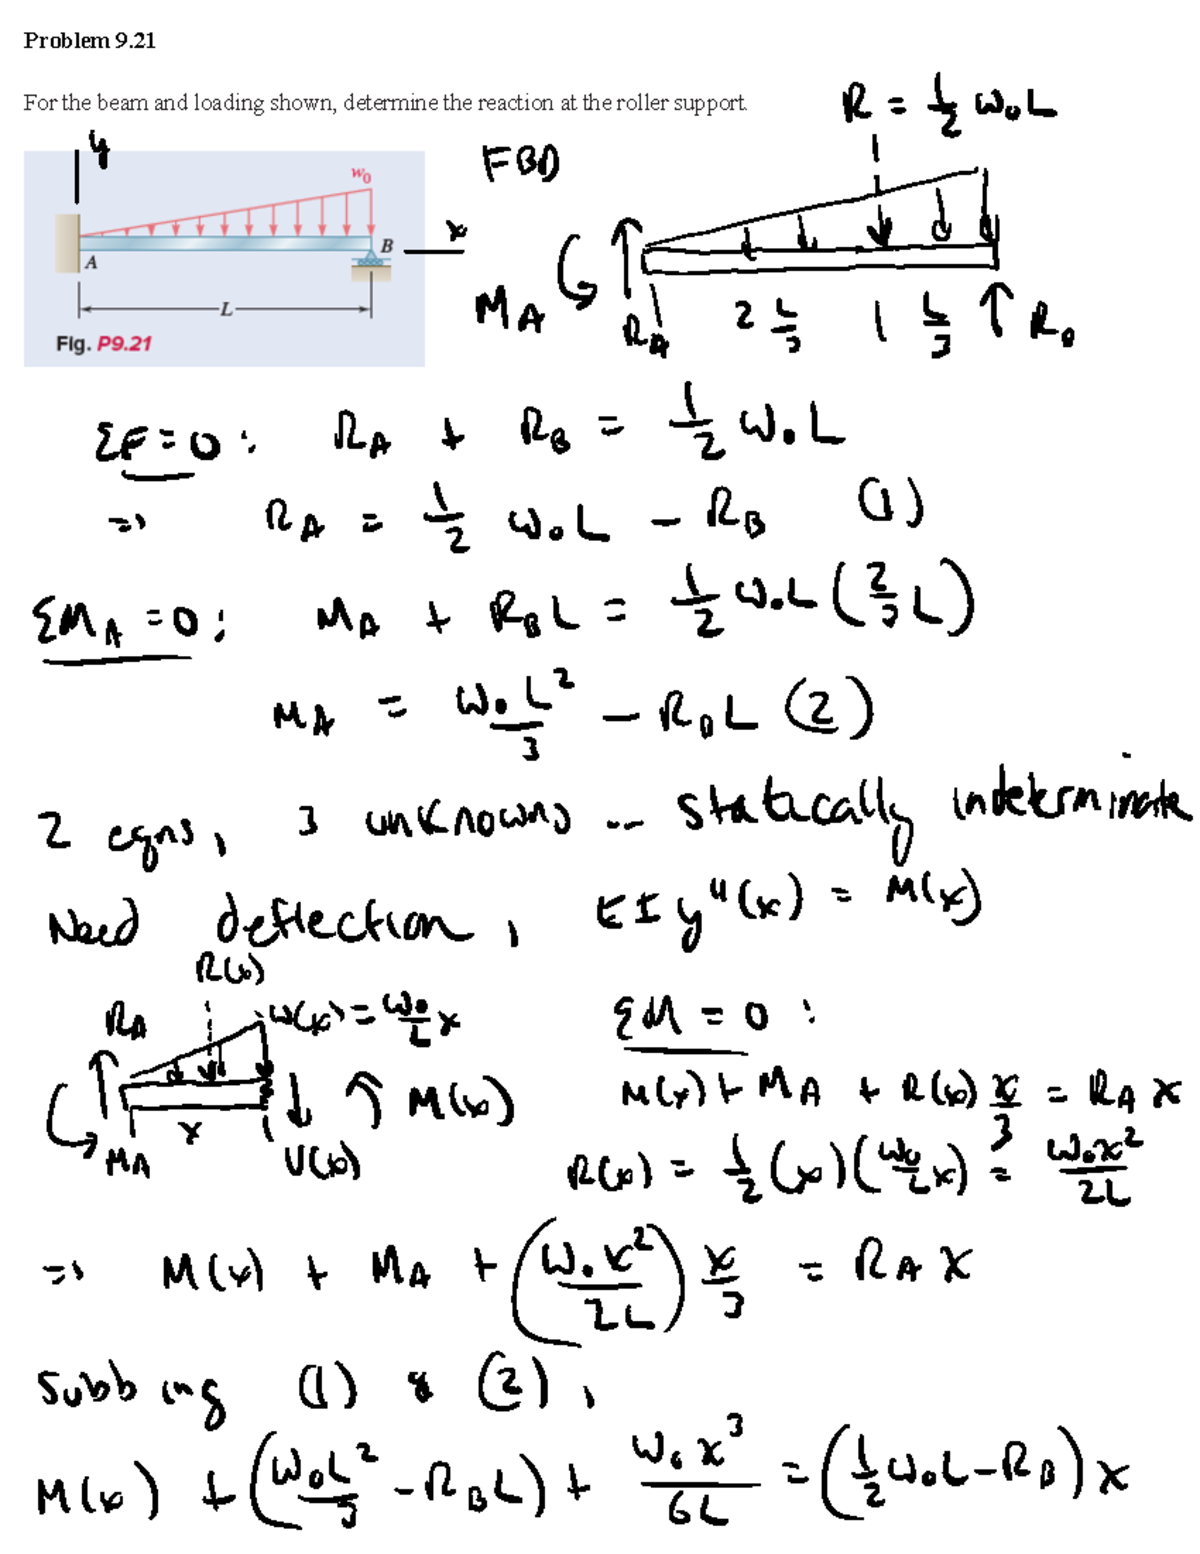 Problem 9.21
For the beam and loading shown, determine the reaction at the roller support.
R = 1/2 w₀L
y
w₀
FBD
B
x
A
L
M_A
R_A
2 L/3
1 L/3
R_B
Fig. P9.21
ΣF=0: R_A + R_B = 1/2 w₀L
=> R_A = 1/2 w₀L - R_B (1)
ΣM_A =0: M_A + R_B L = 1/2 w₀L (2/3 L)
M_A = w₀L²/3 - R_B L (2)
2 eqns, 3 unknowns .. statically indeterminate
Need deflection, EI y"(x) = M(x)
R(x)
R_A
w(x) = w₀/L x
ΣM = 0 :
M(x)
M(x) + M_A + R(x) x/3 = R_A x
x
M_A
V(x)
R(x) = 1/2 (x)(w₀/L x) = w₀x²/2L
=> M(x) + M_A + (w₀x²/2L) x/3 = R_A x
Subbing (1) & (2),
M(x) + (w₀L²/3 - R_B L) + w₀x³/6L = (1/2 w₀L - R_B) x